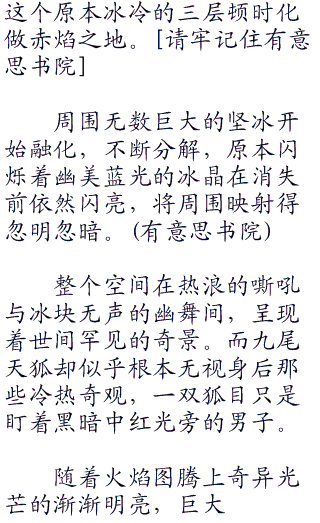 这个原本冰冷的三层顿时化
做赤焰之地。[请牢记住有意
思书院]
周围无数巨大的坚冰开
始融化，不断分解，原本闪
烁着幽美蓝光的冰晶在消失
前依然闪亮，将周围映射得
忽明忽暗。(有意思书院)
整个空间在热浪的嘶吼
与冰块无声的幽舞间，呈现
着世间罕见的奇景。而九尾
天狐却似乎根本无视身后那
些冷热奇观，一双狐目只是
盯着黑暗中红光旁的男子。
随着火焰图腾上奇异光
芒的渐渐明亮，巨大